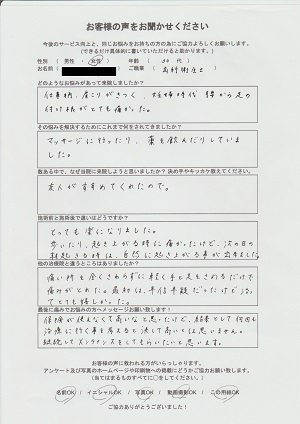 お客様の声をお聞かせください
今後のサービス向上と、同じお悩みをお持ちの方の為にご協力よろしくお願いします。
(できるだけ具体的に書いていただけると助かります。)
性別 ( 男性 ・ 女性 ) 年齢 ( 30 代 )
お名前 ご職業 歯科衛生士
どのようなお悩みがあって来院しましたか?
仕事柄、肩こりがきつく、妊娠時代 腰から足の
付け根がとても痛かった。
そのお悩みを解決するためにこれまで何をされてきましたか?
マッサージに行ったり、薬を飲んだりしていま
した。
数ある中で、なぜ当院に来院しようと思いましたか? 決め手やキッカケ教えてください。
友人がすすめてくれたので。
施術前と施術後で違いはどうですか?
とっても楽になりました。
歩いたり、起き上がる時に痛かったけど、次の日の
朝起きる時は、自然に起き上がる事が出来ました。
他の治療院と違うところはありましたか?
痛い所を全くさわらずに軽く手と足をさわるだけで
痛みがとれた。最初は半信半疑だったけど治っ
てとても嬉しかった。
最後に痛みでお悩みの方へメッセージお願いします!
保険が使えなくて高いなと思ったけど、結果として何回も
治療に行く事を考えると決して高いとは思いません。
継続してメンテナンスをしてもらいたいと思います。
お客様の声に救われる方がいらっしゃいます。
アンケート及び写真のホームページや印刷物への掲載にどうかご協力お願い致します。
(当てはまるものすべてに○をしてください。)
名前OK / イニシャルOK / 写真OK / 動画撮影OK / この用紙OK
ご協力ありがとうございました!